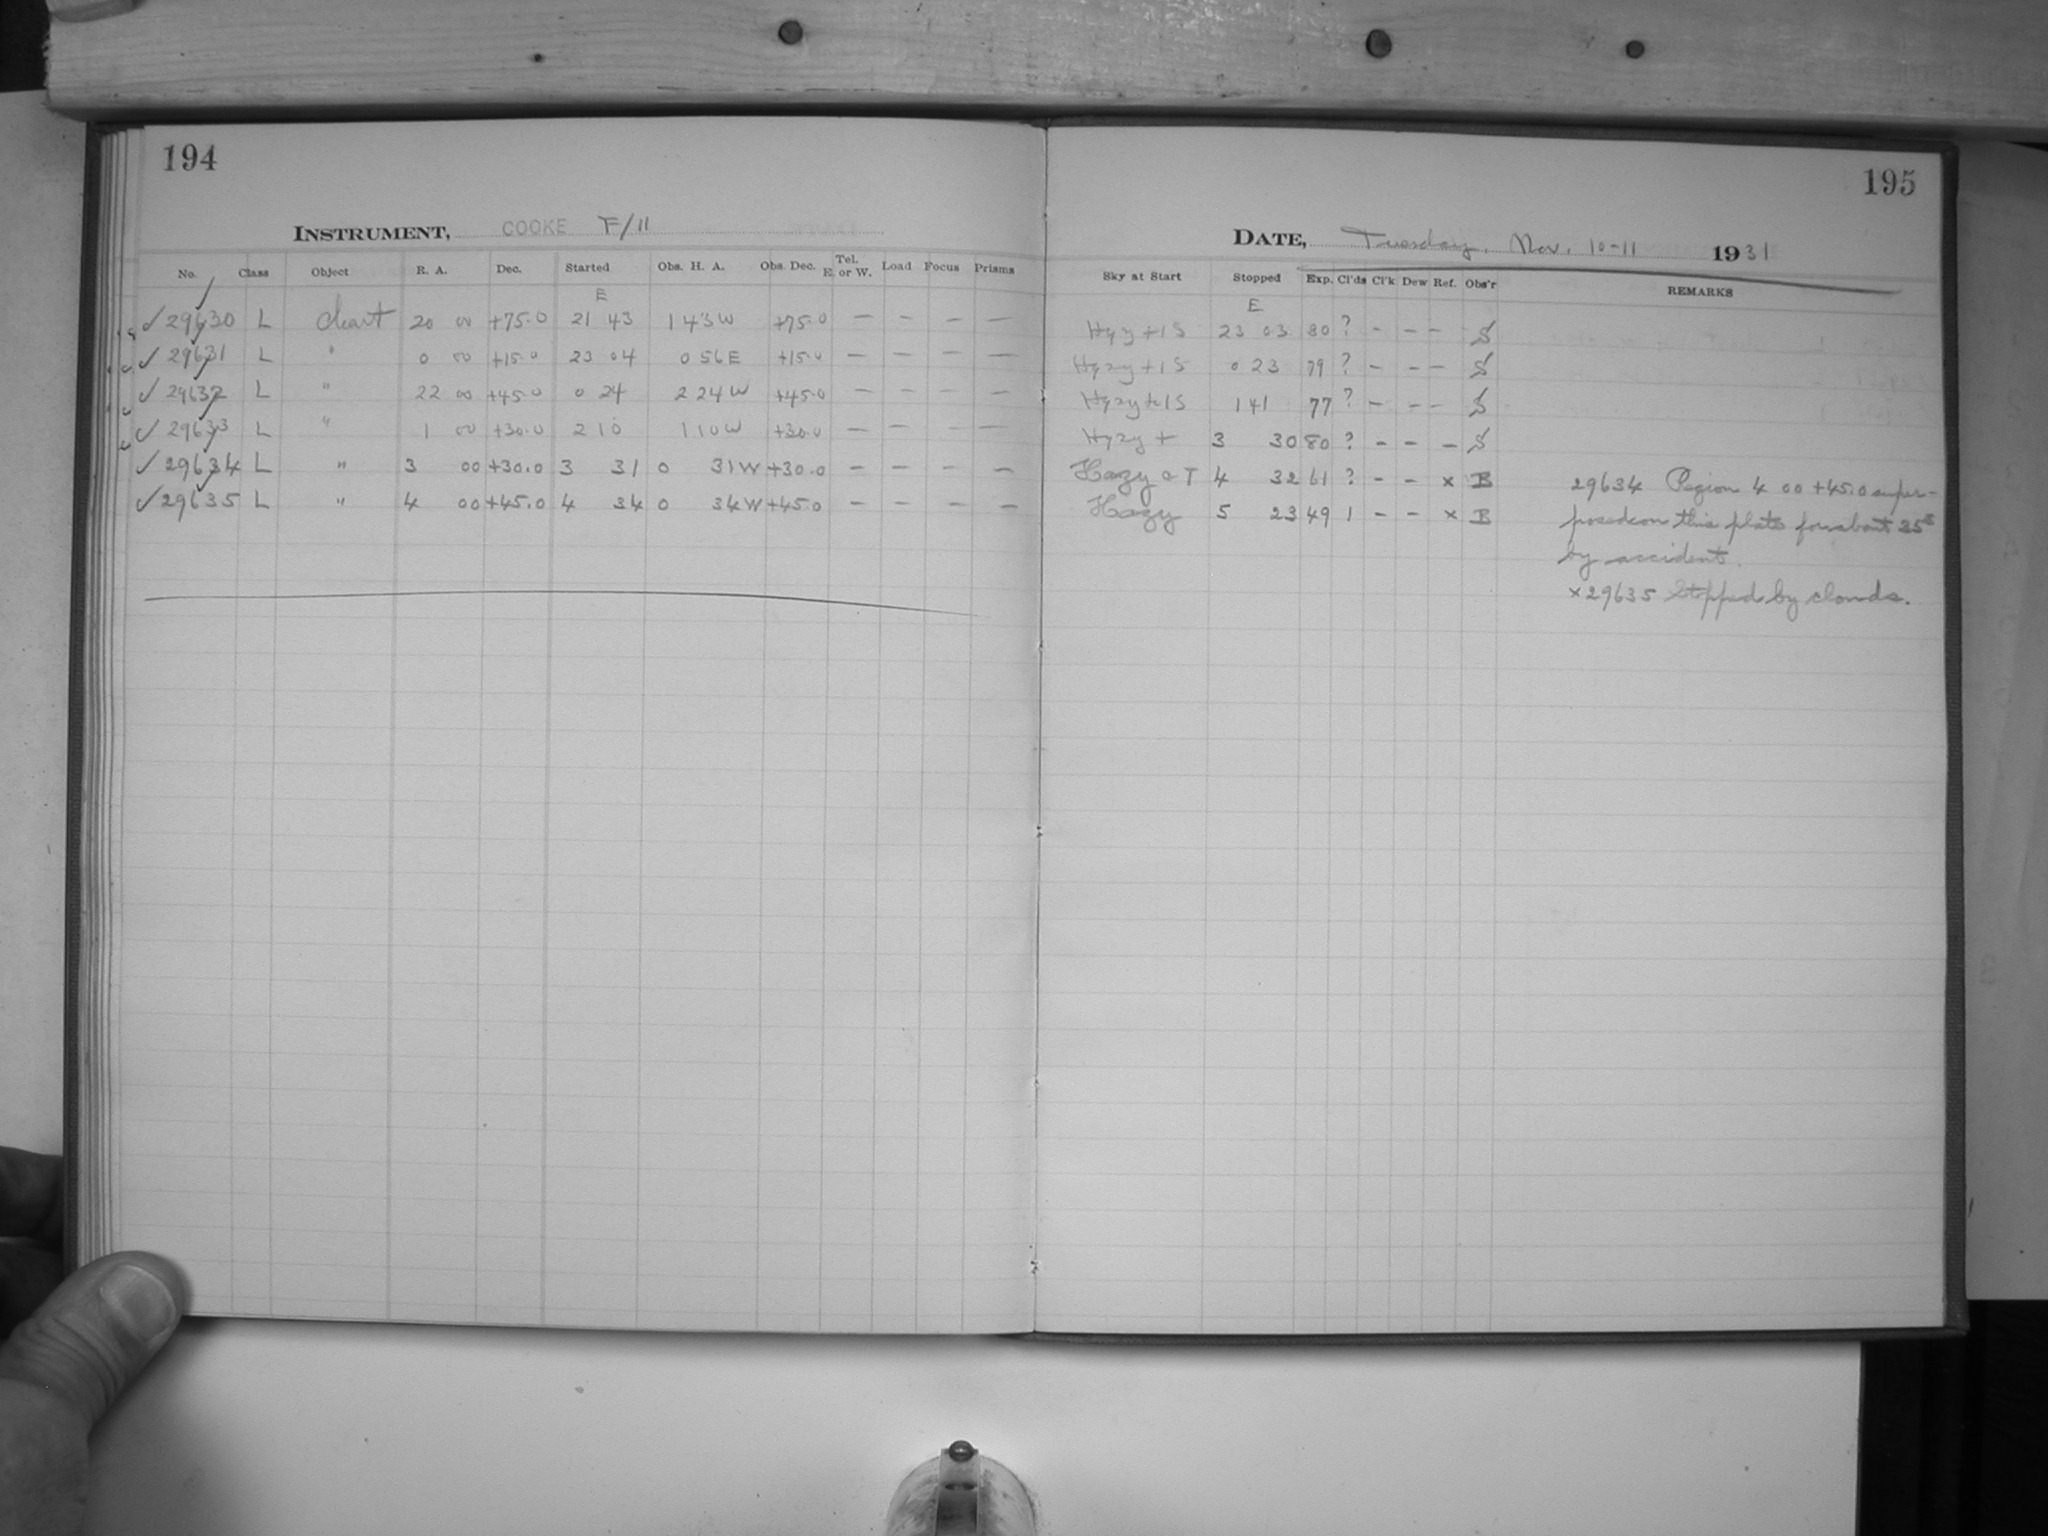 194
INSTRUMENT, COOKE F/11
No. Class Object R. A. Dec. Started Obs. H. A. Obs. Dec. Tel. E. or W. Load Focus Prisms
E
✓ 29630 L chart 20 00 +75.0 21 43 1 43 W +75.0 — — — —
✓ 29631 L " 0 00 +15.0 23 04 0 56 E +15.0 — — — —
✓ 29632 L " 22 00 +45.0 0 24 2 24 W +45.0 — —
✓ 29633 L " 1 00 +30.0 2 10 1 10 W +30.0 — — — —
✓ 29634 L " 3 00 +30.0 3 31 0 31 W +30.0 — — — —
✓ 29635 L " 4 00 +45.0 4 34 0 34 W +45.0 — — — —
195
DATE, Tuesday, Nov. 10-11 1931
Sky at Start Stopped Exp. Cl'ds Cl'k Dew Ref. Obs'r REMARKS
E
23 03 80 ? - - - S
Hazy + 1 S 0 23 79 ? - - - S
1 41 77 ? - - - S
Hazy + 3 30 80 ? - - - S
Hazy & T 4 32 61 ? - - x B
Hazy 5 23 49 1 - - x B
29634 Region 4 00 +45.0 super-
posed on this plate for about 35s
by accident.
x 29635 Stopped by clouds.